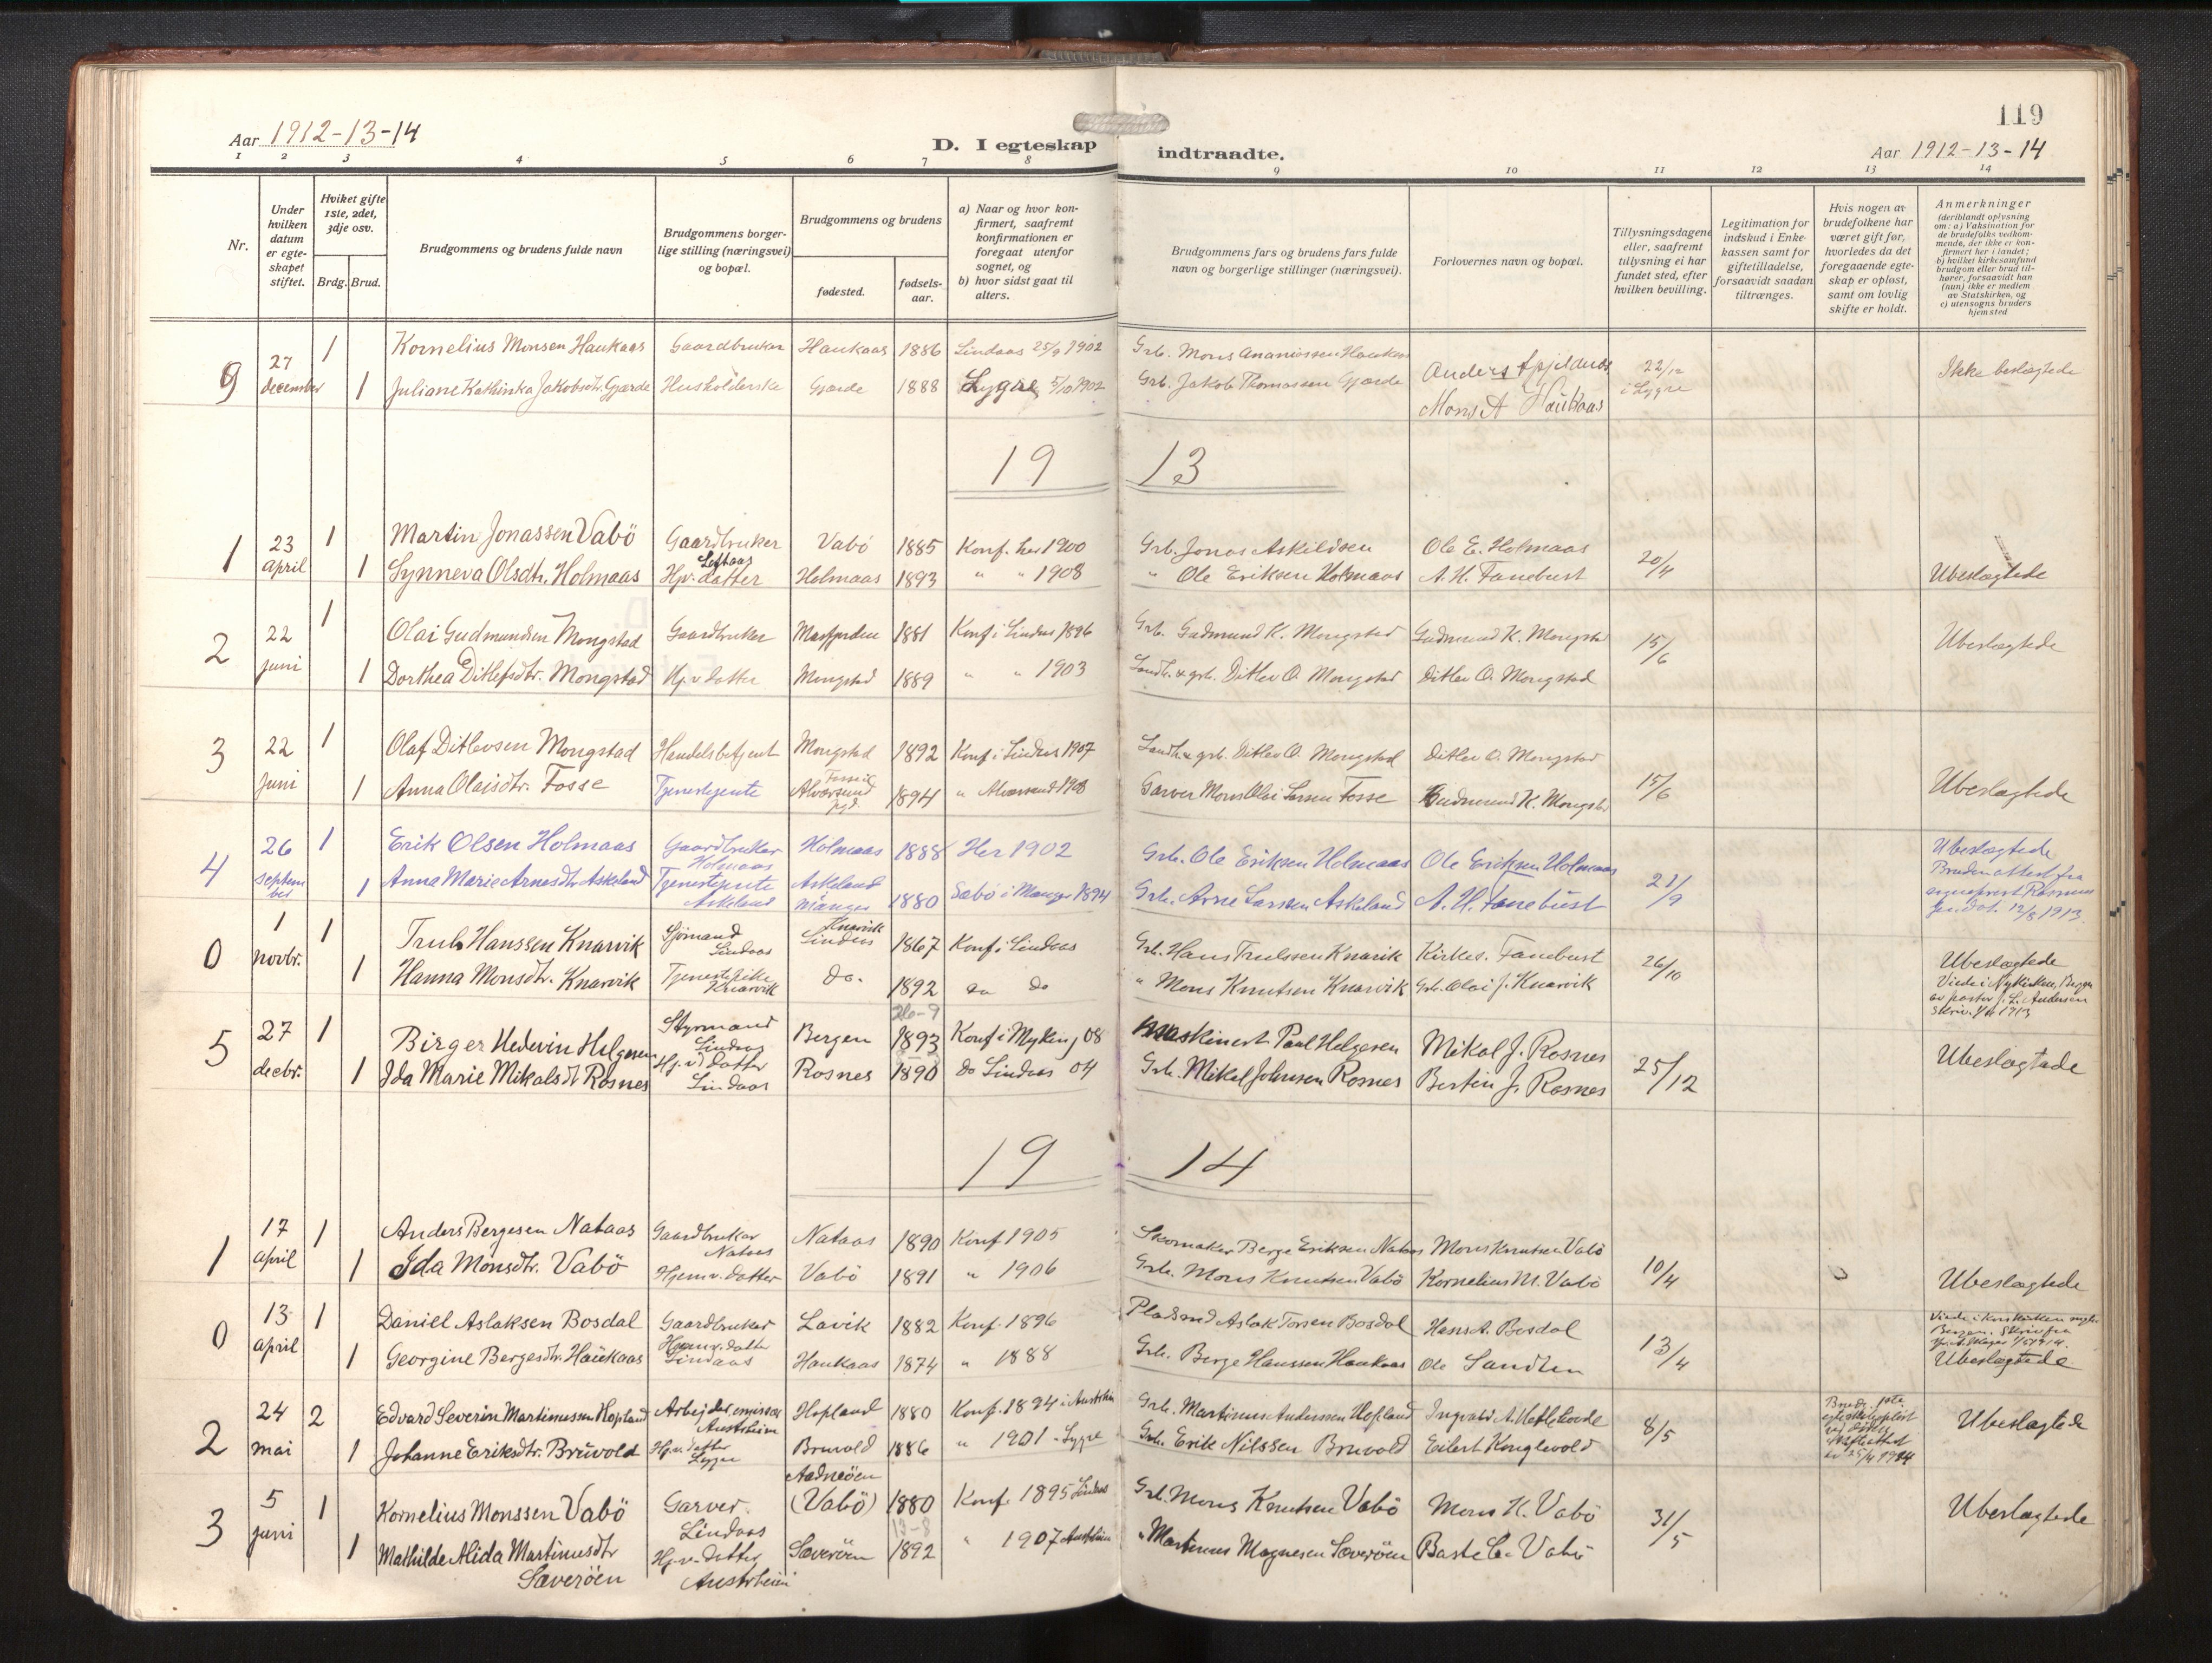 119
Aar 1912-13-14
D. I egteskap indtraadte.
Aar 1912-13-14
1 2 3 4 5 6 7 8 9 10 11 12 13 14
Nr.
Under hvilken datum er egteskapet stiftet.
Hviket gifte 1ste, 2det, 3dje osv.
Brdg. Brud.
Brudgommens og brudens fulde navn
Brudgommens borgerlige stilling (næringsvei) og bopæl.
Brudgommens og brudens
fødested.
fødselsaar.
a) Naar og hvor konfirmert, saafremt konfirmationen er foregaat utenfor sognet, og
b) hvor sidst gaat til alters.
Brudgommens fars og brudens fars fulde navn og borgerlige stillinger (næringsvei).
Forlovernes navn og bopæl.
Tillysningsdagene eller, saafremt tillysning ei har fundet sted, efter hvilken bevilling.
Legitimation for indskud i Enkekassen samt for giftetilladelse, forsaavidt saadan tiltrænges.
Hvis nogen av brudefolkene har været gift før, hvorledes da det foregaaende egteskap er opløst, samt om lovlig skifte er holdt.
Anmerkninger
(deriblandt oplysning om: a) Vaksination for de brudefolks vedkommende, der ikke er konfirmert her i landet; b) hvilket kirkesamfund brudgom eller brud tilhører, forsaavidt han (hun) ikke er medlem av Statskirken, og c) utensogns bruders hjemsted
9 27 december 1 Kornelius Monsen Haukaas Gaardbruker Haukaas 1886 Lindaas 25/9 1902 Grb. Mons Ananiassen Haukaas Anders Apjeldnes 22/12 i Lygre Ikke beslægtede
1 Juliane Kathinka Jakobsdtr. Gjærde Husholderske Gjærde 1888 Lygre 5/10 1902 Grb. Jakob Thomassen Gjærde Mons A Haukaas
19 13
1 23 april 1 Martin Jonassen Vabö Gaardbruker Vabö 1885 Konf. her 1900 Grb. Jonas Askildsen Ole E. Holmaas 20/4
1 Synneva Olsdtr. Holmaas Hjv. datter Holmaas 1893 " " 1908 " Ole Eriksen Holmaas A. H. Fanebust Ubeslægtede
2 22 juni 1 Olai Gudmundsen Mongstad Gaardbruker Masfjorden 1881 Konf i Lindaas 1896 Grb. Gudmund K. Mongstad Gudmund K. Mongstad 15/6 Ubeslægtede
1 Dorthea Ditlefsdtr. Mongstad Hjv datter Mongstad 1889 " " 1903 Landh. & grb. Ditlev O. Mongstad Ditlev O. Mongstad
3 22 juni 1 Olaf Ditlevsen Mongstad Handelsbetjent Mongstad 1892 Konf i Lindaas 1907 Landh. & grb. Ditlev O. Mongstad Ditlev O. Mongstad 15/6
1 Anna Olaisdtr. Fosse Tjenestejente Fosse i Alversund 1894 " Alversund 1908 Garver Mons Olai Larsen Fosse Gudmund K. Mongstad Ubeslægtede
4 26 september 1 Erik Olsen Holmaas Gaardbruker Holmaas Holmaas 1888 Her 1902 Grb. Ole Eriksen Holmaas Ole Eriksen Holmaas 21/9 Ubeslægtede
1 Anna Marie Arnesdtr Askeland Tjenestejente Askeland Askeland Manger 1880 Sæbö i Manger 1894 Grb. Arne Larsen Askeland A. H. Fanebust Bruden attest fra sogneprest 12/8 1913.
0 1 novbr. 1 Truls Hanssen Knarvik Sjömand Lindaas Knarvik Lindaas 1867 Konf i Lindaas Grb. Hans Trulssen Knarvik Kirkes. Fanebust 26/10 Ubeslægtede
1 Hanna Monsdtr. Knarvik Tjenestepike Knarvik do. 1892 do do " Mons Knutsen Knarvik Grb. Olai J. Knarvik Viede i Nykirken, Bergen av pastor J. L. Andersen
5 27 decbr. 1 Birger Hedevin Helgesen Styrmand Lindaas Bergen 26-9 1893 Konf i Myking 08 Maskinist Paul Helgesen Mikal J. Rosnes 25/12 Ubeslægtede
1 Ida Marie Mikalsdt Rosnes Hj. v. datter Lindaas Rosnes 1890 do Lindaas 04 Grb. Mikal Johnsen Rosnes Bertin J. Rosnes
19 14
1 17 april 1 Anders Bergesen Nataas Gaardbruker Nataas Nataas 1890 Konf 1905 Skomaker Berge Eriksen Nataas Mons Knutsen Vabö 10/4
1 Ida Monsdtr. Vabö Hjemv. datter Vabö 1891 " 1906 Grb. Mons Knutsen Vabö Kornelius M. Vabö Ubeslægtede
0 13 april 1 Daniel Aslaksen Bosdal Gaardbruker Lavik 1882 Konf. 1896 Pladsmd Aslak Torsen Bosdal Hans A. Bosdal 13/4
1 Georgine Bergesdtr. Haukaas Hjemv. datter Lindaas Haukaas 1874 " 1888 Grb. Berge Hanssen Haukaas Ole Sandten Ubeslægtede.
2 24 mai 2 Edvard Severin Martinussen Hopland Arbejder, emissær Austrheim Hopland 1880 Konf. 1894 i Austrheim Grb. Martinus Anderssen Hopland Ingvald A. 8/5 Ubeslægtede
1 Johanne Eriksdtr. Bruvold Hj.v. datter Lygre Bruvold 1886 " 1901 - Lygre Grb. Erik Nilssen Bruvold Eilert Konglevold
3 5 juni 1 Kornelius Monssen Vabö Garver. Lindaas Aadneöen (Vabö) 1880 Konf. 1895 Lindaas Grb. Mons Knutsen Vabö Mons K. Vabö 31/5 Ubeslægtede
1 Mathilde Alida Martinusdtr Sæveröen Hj.v. datter Austrheim Sæveröen 13-8 1892 " 1907 Austrheim " Martinus Magnesen Sæveröen Baste C. Vabö